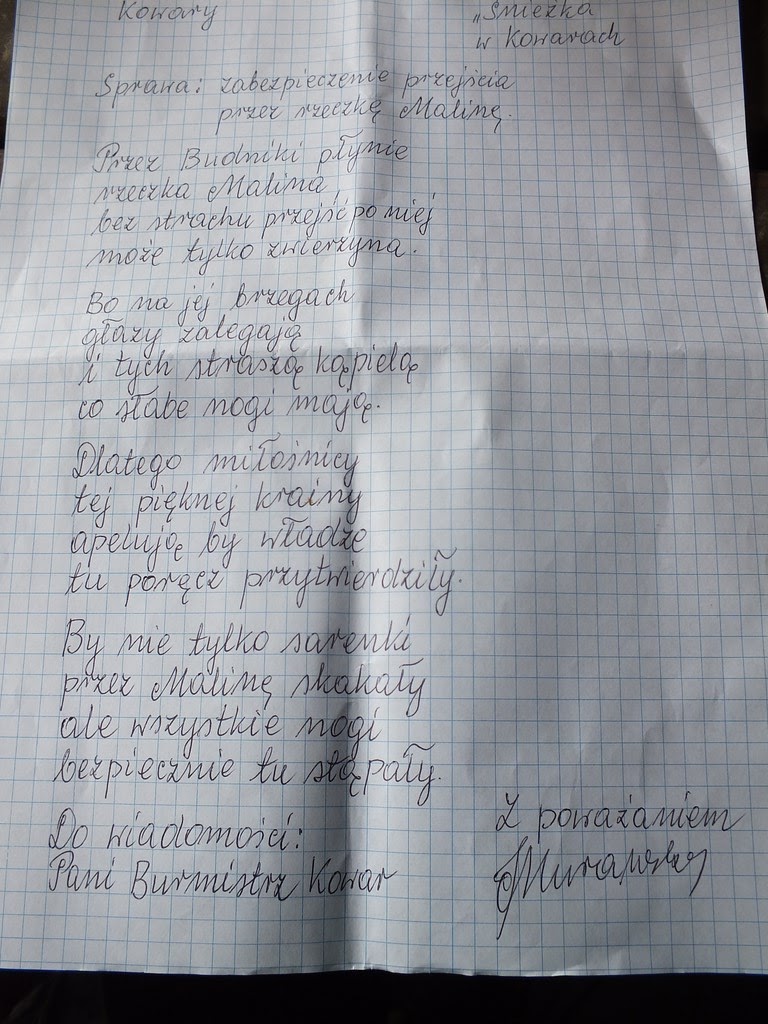 Kowary
„Śnieżka
w Kowarach
Sprawa: zabezpieczenie przejścia
przez rzeczkę Malinę.
Przez Budniki płynie
rzeczka Malina,
bez strachu przejść po niej
może tylko zwierzyna.
Bo na jej brzegach
głazy zalegają
i tych straszą kąpielą
co słabe nogi mają.
Dlatego miłośnicy
tej pięknej krainy
apelują by władze
tu poręcz przytwierdziły.
By nie tylko sarenki
przez Malinę skakały
ale wszystkie nogi
bezpiecznie tu stąpały.
Do wiadomości:
Pani Burmistrz Kowar
Z poważaniem